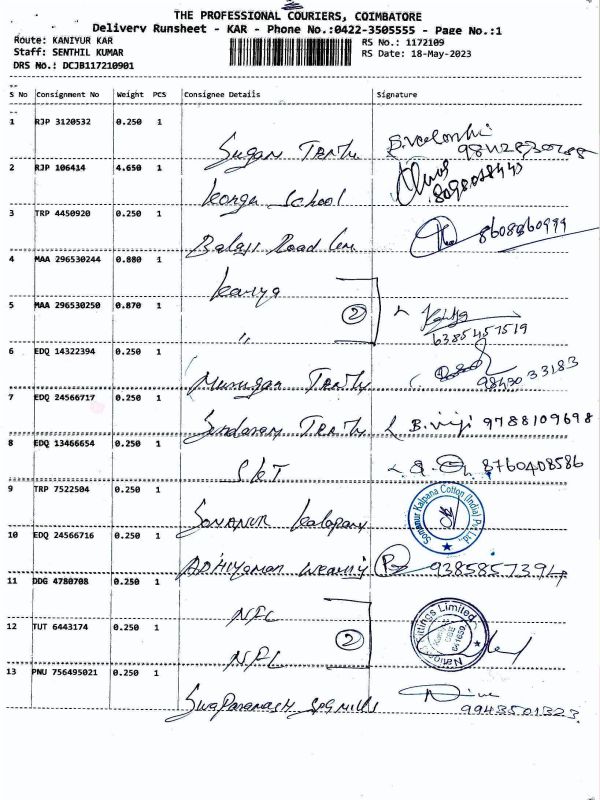 THE PROFESSIONAL COURIERS, COIMBATORE
Delivery Runsheet - KAR - Phone No.:0422-3505555 - Page No.:1
Route: KANIYUR KAR
RS No.: 1172109
Staff: SENTHIL KUMAR
RS Date: 18-May-2023
DRS No.: DCJB117210901
S No Consignment No Weight PCS Consignee Details Signature
1 RJP 3120532 0.250 1
Sugan
2 RJP 106414 4.650 1
School
3 TRP 4450920 0.250 1
Balaji Road 8608860999
4 MAA 296530244 0.880 1
Kaniya
5 MAA 296530250 0.870 1
2
"
6385457519
6 EDQ 14322394 0.250 1
Murugan 98430 33183
7 EDQ 24566717 0.250 1
B. viji 9788109698
8 EDQ 13466654 0.250 1
SKT 8760408586
9 TRP 7522504 0.250 1
Somanur Kalpana Cotton (India) Pvt Ltd.
10 EDQ 24566716 0.250 1
ADHIYAMAN 9385857394
11 DDG 4780708 0.250 1
NFL
12 TUT 6443174 0.250 1
2
National Fittings Limited
NFL
13 PNU 756495021 0.250 1
9943501323